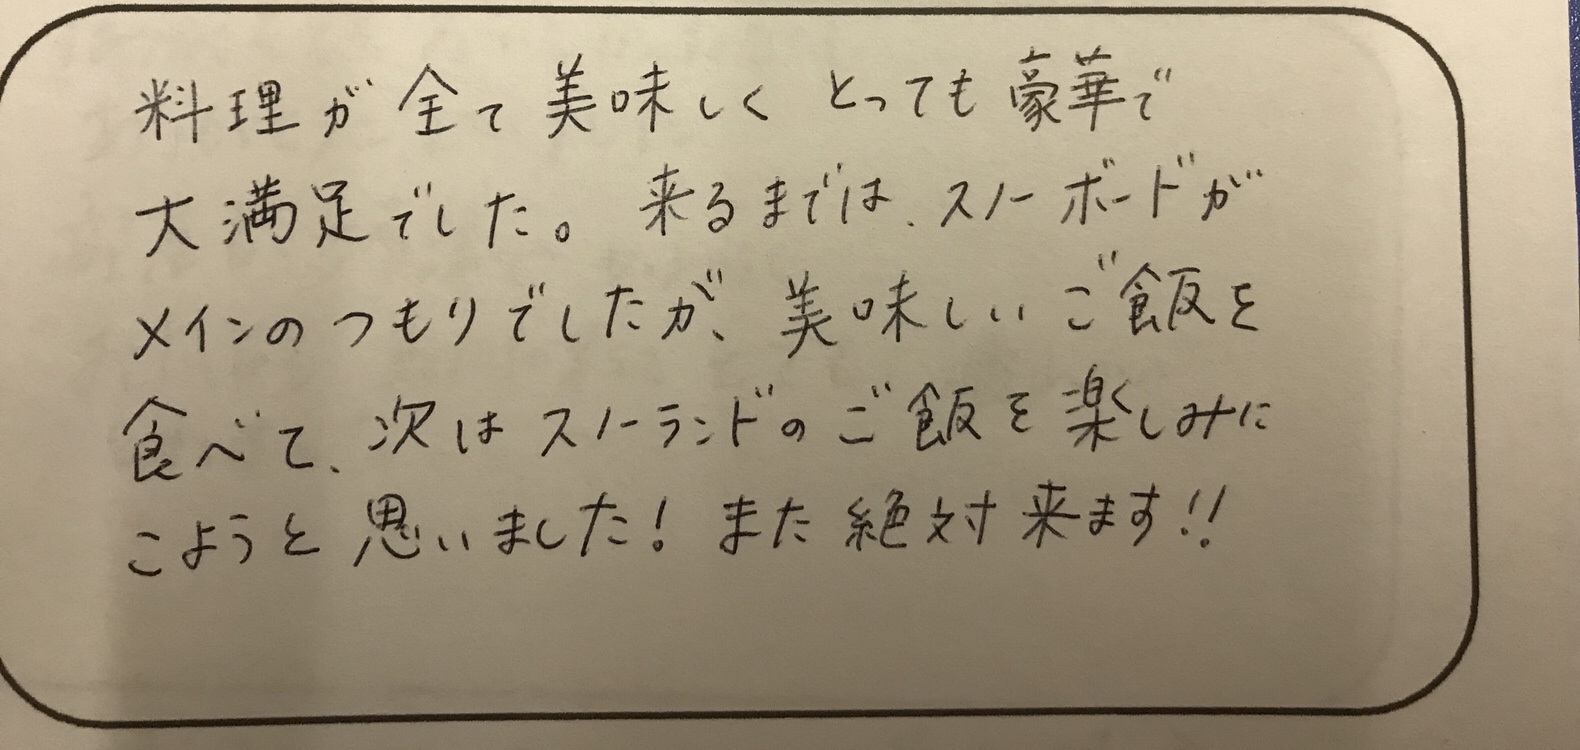 料理が全て美味しく とっても豪華で
大満足でした。 来るまでは、スノーボードが
メインのつもりでしたが、美味しいご飯を
食べて、次はスノーランドのご飯を楽しみに
こようと思いました！また絶対来ます!!